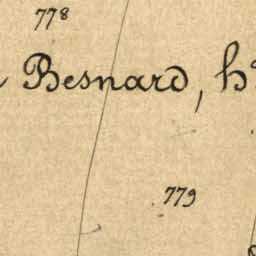 778
Besnard, h
779